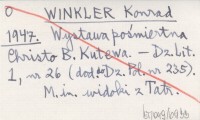 O WINKLER Konrad
1947. Wystawa pośmiertna
Christo B. Kutewa. – Dz. lit.
1, nr 26 (dod. do Dz. Pol. nr 235).
M. in. widoki z Tatr.